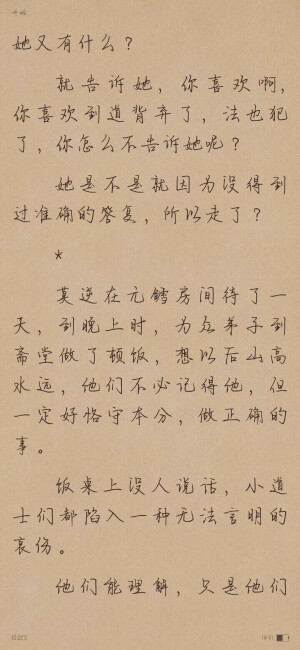 她又有什么？
就告诉她，你喜欢啊，
你喜欢到道背弃了，法也犯
了，你怎么不告诉她呢？
她是不是就因为没得到
过准确的答复，所以走了？
*
莫逆在元鳕房间待了一
天，到晚上时，为众弟子到
斋堂做了顿饭，想以后山高
水远，他们不必记得他，但
一定好恪守本分，做正确的
事。
饭桌上没人说话，小道
士们都陷入一种无法言明的
哀伤。
他们能理解，只是他们